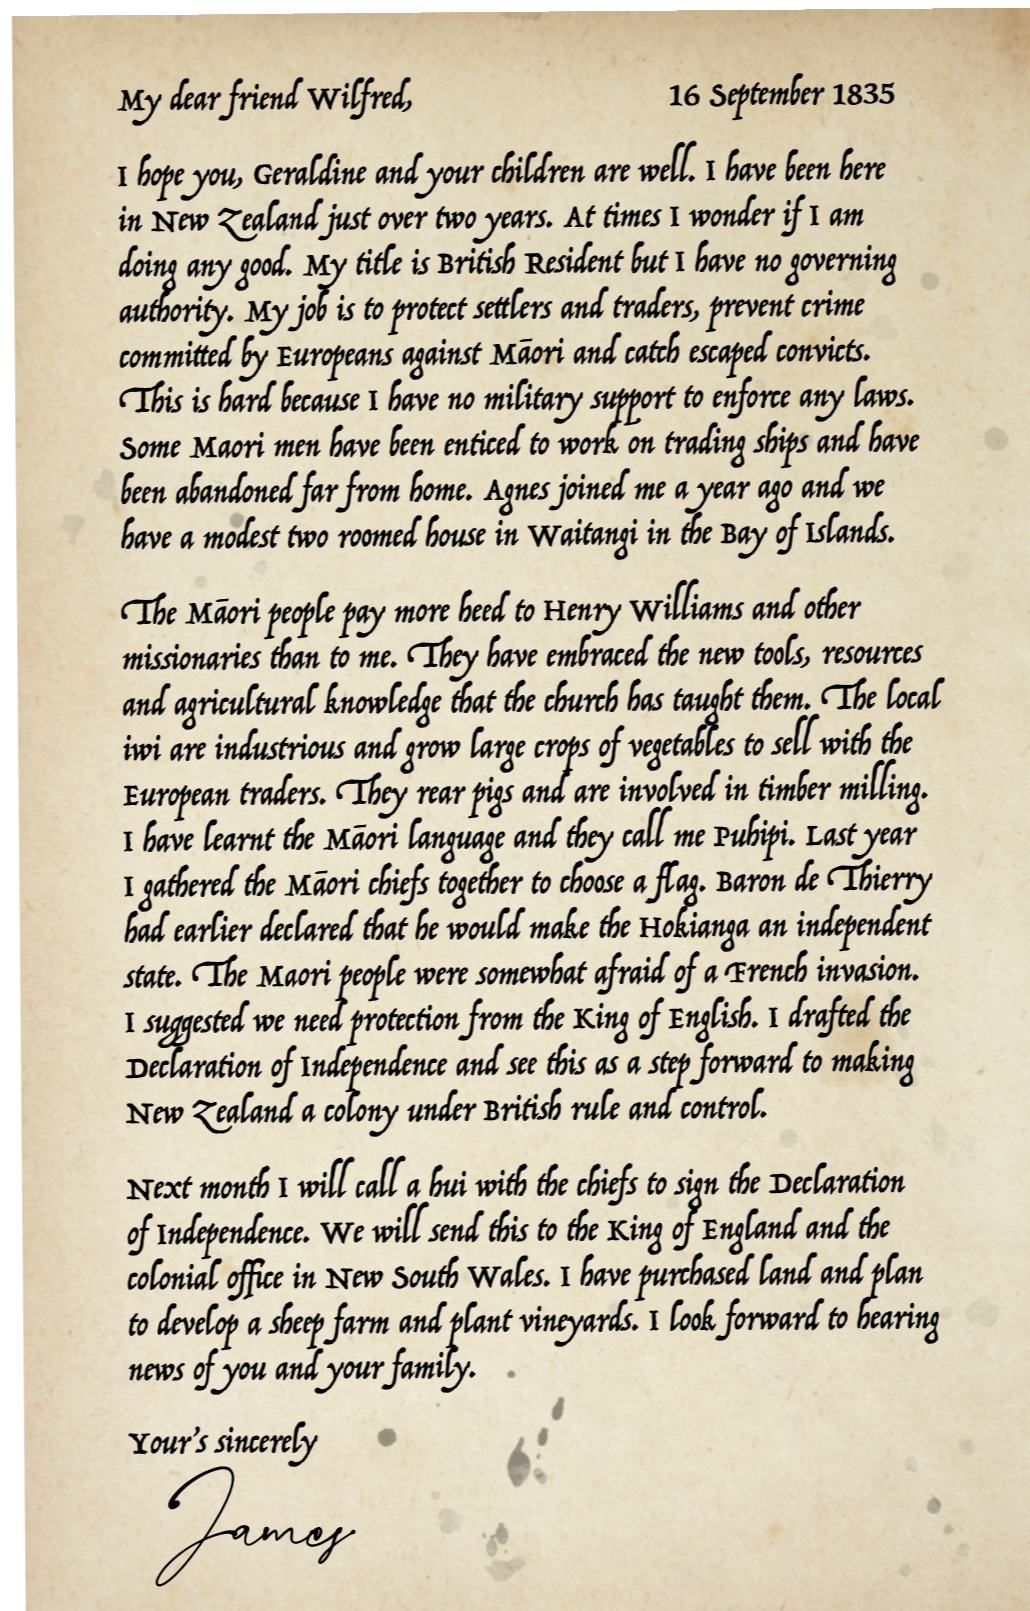 My dear friend Wilfred, 16 September 1835
I hope you, Geraldine and your children are well. I have been here
in New Zealand just over two years. At times I wonder if I am
doing any good. My title is British Resident but I have no governing
authority. My job is to protect settlers and traders, prevent crime
committed by Europeans against Māori and catch escaped convicts.
This is hard because I have no military support to enforce any laws.
Some Maori men have been enticed to work on trading ships and have
been abandoned far from home. Agnes joined me a year ago and we
have a modest two roomed house in Waitangi in the Bay of Islands.
The Māori people pay more heed to Henry Williams and other
missionaries than to me. They have embraced the new tools, resources
and agricultural knowledge that the church has taught them. The local
iwi are industrious and grow large crops of vegetables to sell with the
European traders. They rear pigs and are involved in timber milling.
I have learnt the Māori language and they call me Puhipi. Last year
I gathered the Māori chiefs together to choose a flag. Baron de Thierry
had earlier declared that he would make the Hokianga an independent
state. The Maori people were somewhat afraid of a French invasion.
I suggested we need protection from the King of English. I drafted the
Declaration of Independence and see this as a step forward to making
New Zealand a colony under British rule and control.
Next month I will call a hui with the chiefs to sign the Declaration
of Independence. We will send this to the King of England and the
colonial office in New South Wales. I have purchased land and plan
to develop a sheep farm and plant vineyards. I look forward to hearing
news of you and your family.
Your's sincerely
James